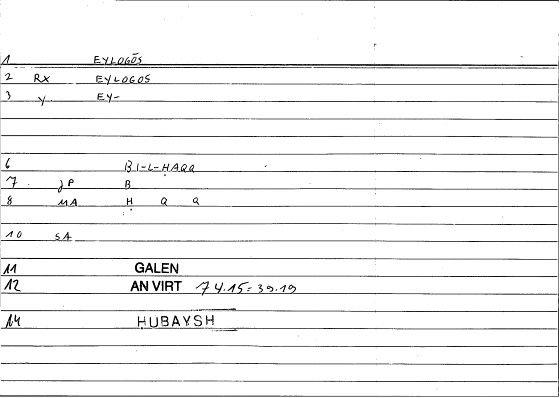 1 EYLOGŌS
2 RX EYLOGOS
3 y EY-
6 BI-L-ḤAQQ
7. JP B
8 MA Ḥ Q Q
10 SA
11 GALEN
12 AN VIRT 74.15=39.19
14 ḤUBAYSH